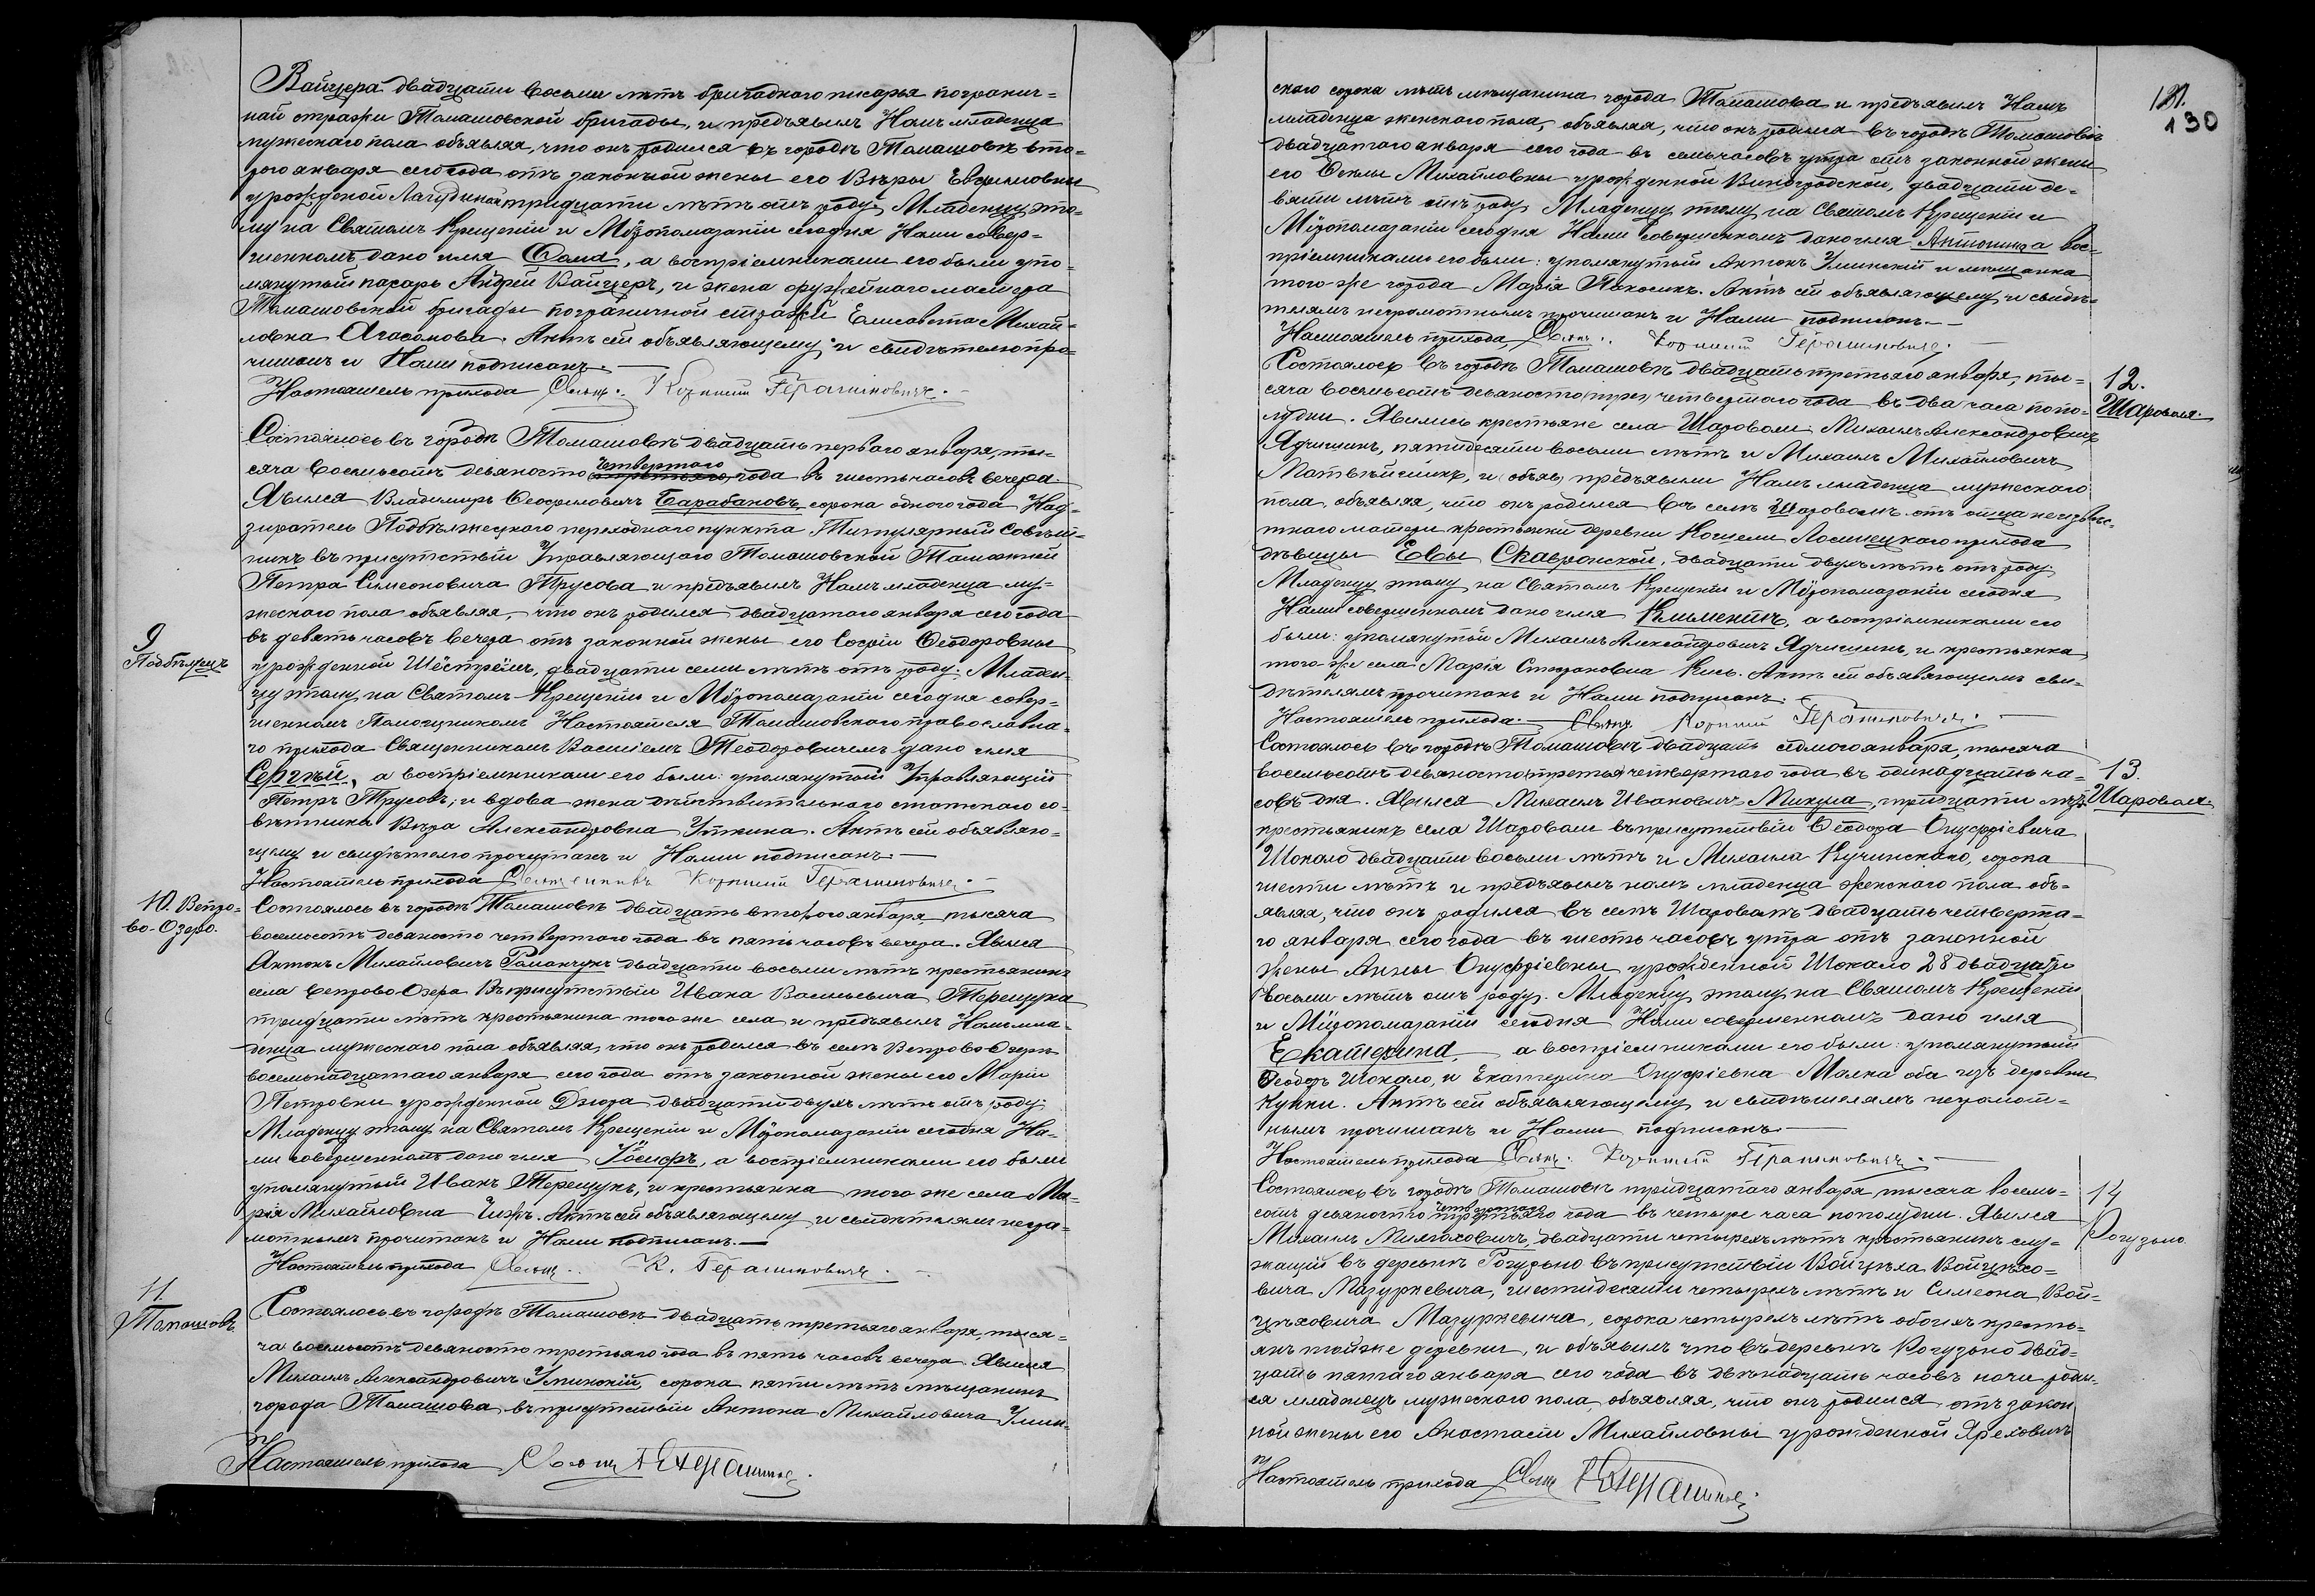 Вайцера двадцати восьми лѣтъ бригаднаго писаря погранич-
ной стражи Томашовской бригады, и предъявилъ Намъ младенца
мужескаго пола объявляя, что онъ родился въ городѣ Томашовѣ вто-
рого января сего года отъ законной жены его Вѣры Евфимовны
урожденной тридцати лѣтъ отъ роду. Младенцу это-
му на Святомъ Крещеніи и Мѵропомазаніи сегодня Нами совер-
шенномъ дано имя Ѳома, а воспріемниками его были упо-
мянутый писарь Андрей Вайцеръ, и жена оружейнаго мастера
Томашовской бригады пограничной стражи Елисавета Михай-
ловна Агафонова. Актъ сей объявляющему и свидѣтелю про-
читанъ и Нами подписанъ.—
Настоятель прихода Свящ. Корнилій Герасимовичъ.—
Состоялось въ городѣ Томашовѣ двадцать перваго января, ты-
сяча восемьсотъ девяносто четвертаго года въ шесть часовъ вечера.
Явился Владимиръ Ѳеофиловичъ Барабановъ, сорока одного года Над-
зиратель Подбѣлжецкаго переходнаго пункта Титулярный Совѣт-
никъ въ присутствіи Управляющаго Томашовской Таможней
Петра Симеоновича Трусова и предъявилъ Намъ младенца му-
жескаго пола объявляя, что онъ родился двадцатаго января сего года
въ девять часовъ вечера отъ законной жены его Софіи Ѳеодоровны
9
Подбѣлжецъ
урожденной Шёстрёмъ, двадцати семи лѣтъ отъ роду. Младен-
цу этому на Святомъ Крещеніи и Мѵропомазаніи сегодня совер-
шенномъ Помощникомъ Настоятеля Томашовскаго православна-
го прихода Священникомъ Василіемъ Теодоровичемъ дано имя
Сергѣй, а воспріемниками его были: упомянутый Управляющій
Петръ Трусовъ, и вдова жена дѣйствительнаго статскаго со-
вѣтника Вѣра Александровна Уткина. Актъ сей объявляю-
щему и свидѣтелю прочитанъ и Нами подписанъ.—
Настоятель прихода Священникъ Корнилій Герасимовичъ.—
10. Вепро-
во-Озеро.
Состоялось въ городѣ Томашовѣ двадцать второго января, тысяча
восемьсотъ девяносто четвертаго года въ пять часовъ вечера. Явился
Антонъ Михайловичъ Романчукъ двадцати восьми лѣтъ крестьянинъ
села Вепрово Озера въ присутствіи Ивана Васильевича Терещука
тридцати лѣтъ крестьянина того же села и предъявилъ Намъ мла-
денца мужескаго пола объявляя, что онъ родился въ селѣ Вепрово Озерѣ
восемьнадцатаго января сего года отъ законной жены его Маріи
Петровны урожденной Дзюра двадцати двухъ лѣтъ отъ роду.
Младенцу этому на Святомъ Крещеніи и Мѵропомазаніи сегодня На-
ми совершенномъ дано имя Іосифъ, а воспріемниками его были
упомянутый Иванъ Терещукъ, и крестьянка того же села Ма-
рія Михайловна Чижъ. Актъ сей объявляющему и свидѣтелямъ негра-
мотнымъ прочитанъ и Нами подписанъ.—
Настоятель прихода Свящ. К. Герасимовичъ.—
11.
Томашовъ.
Состоялось въ городѣ Томашовѣ двадцать третьяго января, тыся-
ча восемьсотъ девяносто третьяго года въ пять часовъ вечера. Явился
Михаилъ Александровичъ Уминскій, сорока пяти лѣтъ мѣщанинъ
города Томашова, въ присутствіи Антона Михайловича Умин-
Настоятель прихода Свящ.
131.
130
скаго сорока лѣтъ мѣщанина города Томашова и предъявилъ Намъ
младенца женскаго пола, объявляя, что онъ родился въ городѣ Томашовѣ
двадцатаго января сего года въ семь часовъ утра отъ законной жены
его Ѳеклы Михайловны урожденной Виноградской, двадцати де-
вяти лѣтъ отъ роду. Младенцу этому на Святомъ Крещеніи и
Мѵропомазаніи сегодня Нами совершенномъ дано имя Антонина, а вос-
пріемниками его были: упомянутый Антонъ Уминскій и мѣщанка
того-же города Марія Покосинъ. Актъ сей объявляющему и свидѣ-
телямъ неграмотнымъ прочитанъ и Нами подписанъ.—
Настоятель прихода, Свящ. Корнилій Герасимовичъ.—
12.
Шароволя.
Состоялось въ городѣ Томашовѣ двадцать третьяго января, ты-
сяча восемьсотъ девяносто (трет) четвертаго года въ два часа попо-
лудни. Явились крестьяне села Шароволи Михаилъ Александровичъ
Ядчишинъ, пятидесяти восьми лѣтъ и Михаилъ Михайловичъ
Матвѣйшинъ, и (объяв) предъявили Намъ младенца мужескаго
пола, объявляя, что онъ родился въ селѣ Шароволѣ отъ отца неизвѣс-
тнаго матери крестьянки деревни Кошели Лосинецкаго прихода
дѣвицы Евы Скавронской, двадцати двухъ лѣтъ отъ роду.
Младенцу этому на Святомъ Крещеніи и Мѵропомазаніи сегодня
Нами совершенномъ дано имя Климентъ, а воспріемниками его
были: упомянутый Михаилъ Александровичъ Ядчишинъ, и крестьянка
того-же села Марія Стефановна Кись. Актъ сей объявляющимъ сви-
дѣтелямъ прочитанъ и Нами подписанъ.
Настоятель прихода.— Свящ. Корнилій Герасимовичъ.—
13.
Шароволя.
Состоялось въ городѣ Томашовѣ двадцать седмого января, тысяча
восемьсотъ девяносто (третья) четвертаго года въ одинадцать ча-
совъ дня. Явился Михаилъ Ивановичъ Микула, тридцати лѣтъ
крестьянинъ села Шароволи въ присутствіи Ѳеодора Онуфріевича
Шокало двадцати восьми лѣтъ и Михаила Кучинскаго, сорока
шести лѣтъ и предъявилъ намъ младенца женскаго пола объ-
являя, что онъ родился въ селѣ Шароволѣ двадцать четверта-
го января сего года въ шесть часовъ утра отъ законной
жены Анны Онуфріевны урожденной Шокало 28 двадцати
восьми лѣтъ отъ роду. Младенцу этому на Святомъ Крещеніи
и Мѵропомазаніи сегодня Нами совершенномъ дано имя
Екатерина,— а воспріемниками его были: упомянутый
Ѳеодоръ Шокало, и Екатерина Онуфріевна Маяка оба изъ деревни
Кунки. Актъ сей объявляющему и свидѣтелямъ неграмот-
нымъ прочитанъ и Нами подписанъ.—
Настоятель прихода Свящ. Корнилій Герасимовичъ.—
14
Рогузьно
Состоялось въ городѣ Томашовѣ тридцатаго января, тысяча восемь-
сотъ девяносто четвертаго года въ четыре часа пополудни. Явился
Михаилъ двадцати четырехъ лѣтъ крестьянинъ слу-
жащій въ деревнѣ Рогузьно въ присутствіи Войцѣха Войцѣхо-
вича Мазуркевича, шестидесяти четырехъ лѣтъ и Симеона Вой-
цѣховича Мазуркевича, сорока четырехъ лѣтъ обоихъ кресть-
янъ той же деревни, и объявилъ что въ деревнѣ Рогузьно двад-
цать пятаго января сего года въ двѣнадцать часовъ ночи роди-
ся младенецъ мужескаго пола, объявляя, что онъ родился отъ закон
ной жены его Анастасіи Михайловны урожденной Яреховичъ
Настоятель прихода Свящ.